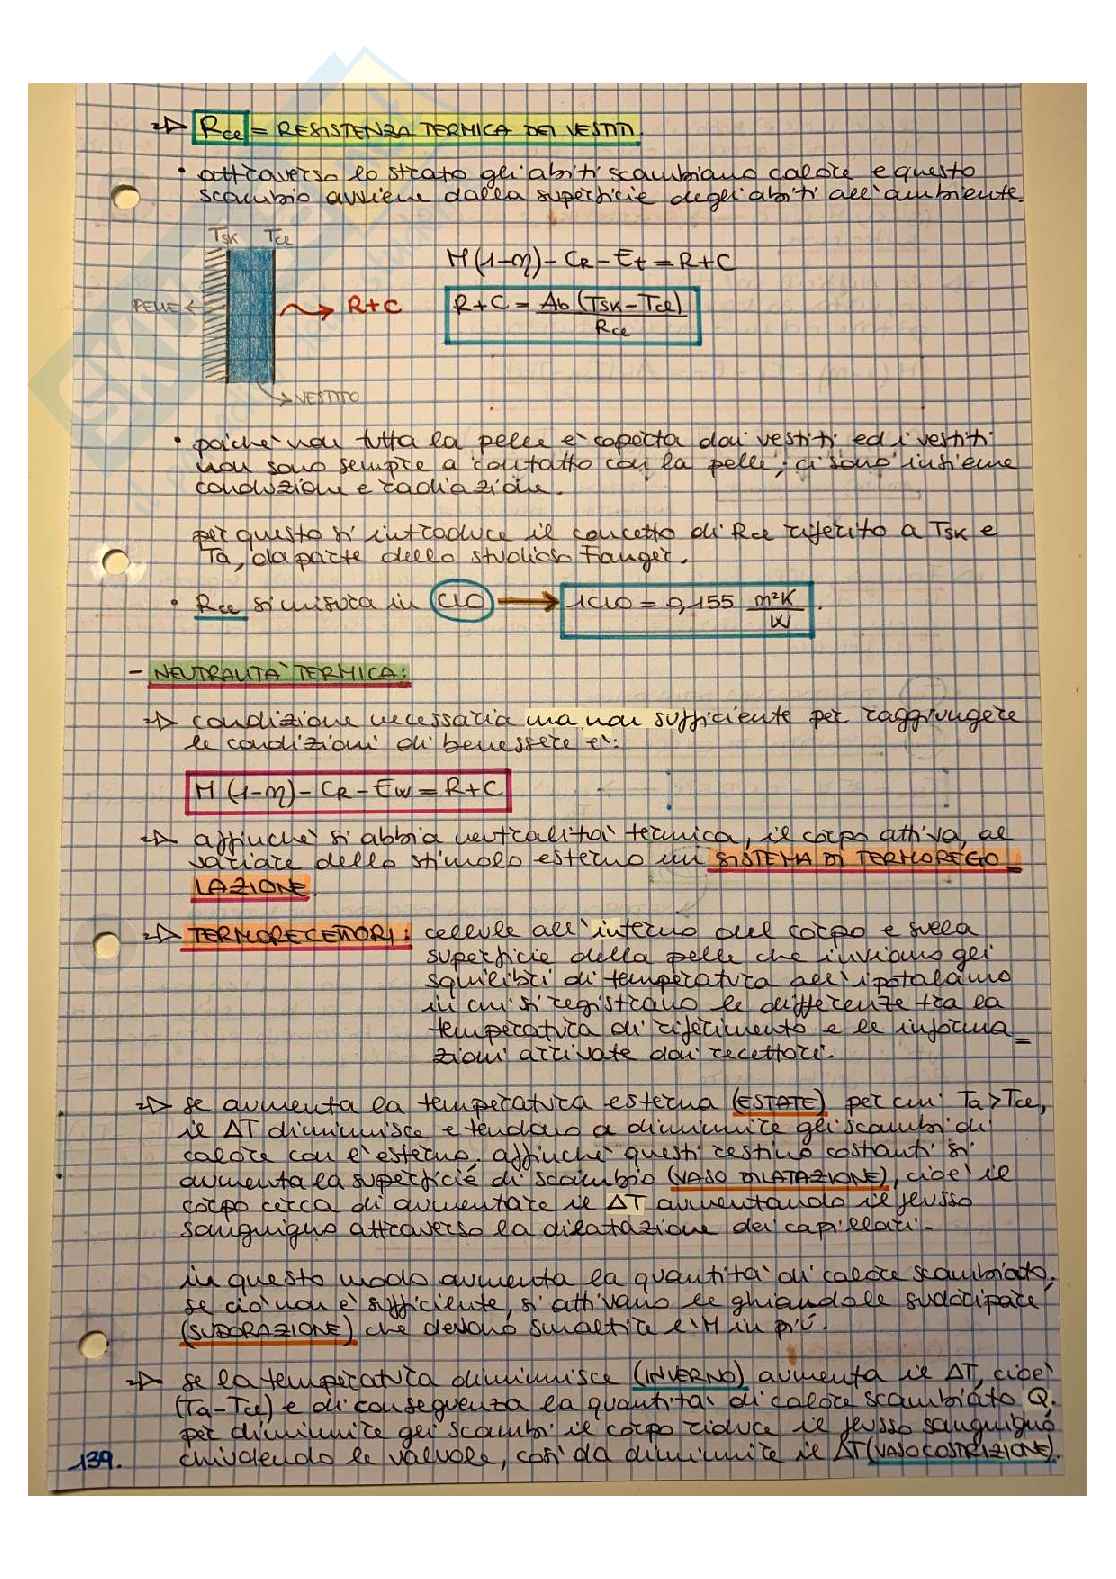 → Rce = RESISTENZA TERMICA DEI VESTITI.
• attraverso lo strato gli abiti scambiano calore e questo
scambio avviene dalla superficie degli abiti all'ambiente.
TSK Tce
PELLE ← → R+C
→ VESTITO
M(1-η) - CR - Et = R+C
R+C = Ab (TSK - Tce)
Rce
• poiché non tutta la pelle è coperta dai vestiti ed i vestiti
non sono sempre a contatto con la pelle, ci sono insieme
conduzione e radiazione.
per questo si introduce il concetto di Rce riferito a TSK e
Ta, da parte dello studioso Fanger.
• Rce si misura in CLO → 1CLO = 0,155 m²K
W
- NEUTRALITA' TERMICA:
→ condizione necessaria ma non sufficiente per raggiungere
le condizioni di benessere è:
M (1-η) - CR - EW = R+C
→ affinché si abbia neutralità termica, il corpo attiva, al
variare dello stimolo esterno un SISTEMA DI TERMOREGO
LAZIONE
→ TERMORECETTORI: cellule all'interno del corpo e sulla
superficie della pelle che inviano gli
squilibri di temperatura all'ipotalamo
in cui si registrano le differenze tra la
temperatura di riferimento e le informa_
zioni arrivate dai recettori.
→ se aumenta la temperatura esterna (ESTATE) per cui Ta>Tce,
il ΔT diminuisce e tendano a diminuire gli scambi di
calore con l'esterno. affinché questi restino costanti si
aumenta la superficie di scambio (VASO DILATAZIONE), cioè il
corpo cerca di aumentare il ΔT aumentando il flusso
sanguigno attraverso la dilatazione dei capillari.
in questo modo aumenta la quantità di calore scambiato,
se ciò non è sufficiente, si attivano le ghiandole sudoripare
(SUDORAZIONE) che devono smaltire l'M in più.
→ se la temperatura diminuisce (INVERNO) aumenta il ΔT, cioè
(Ta-Tce) e di conseguenza la quantità di calore scambiato Q.
per diminuire gli scambi il corpo riduce il flusso sanguigno
chiudendo le valvole, così da diminuire il ΔT (VASOCOSTRIZIONE).
139.